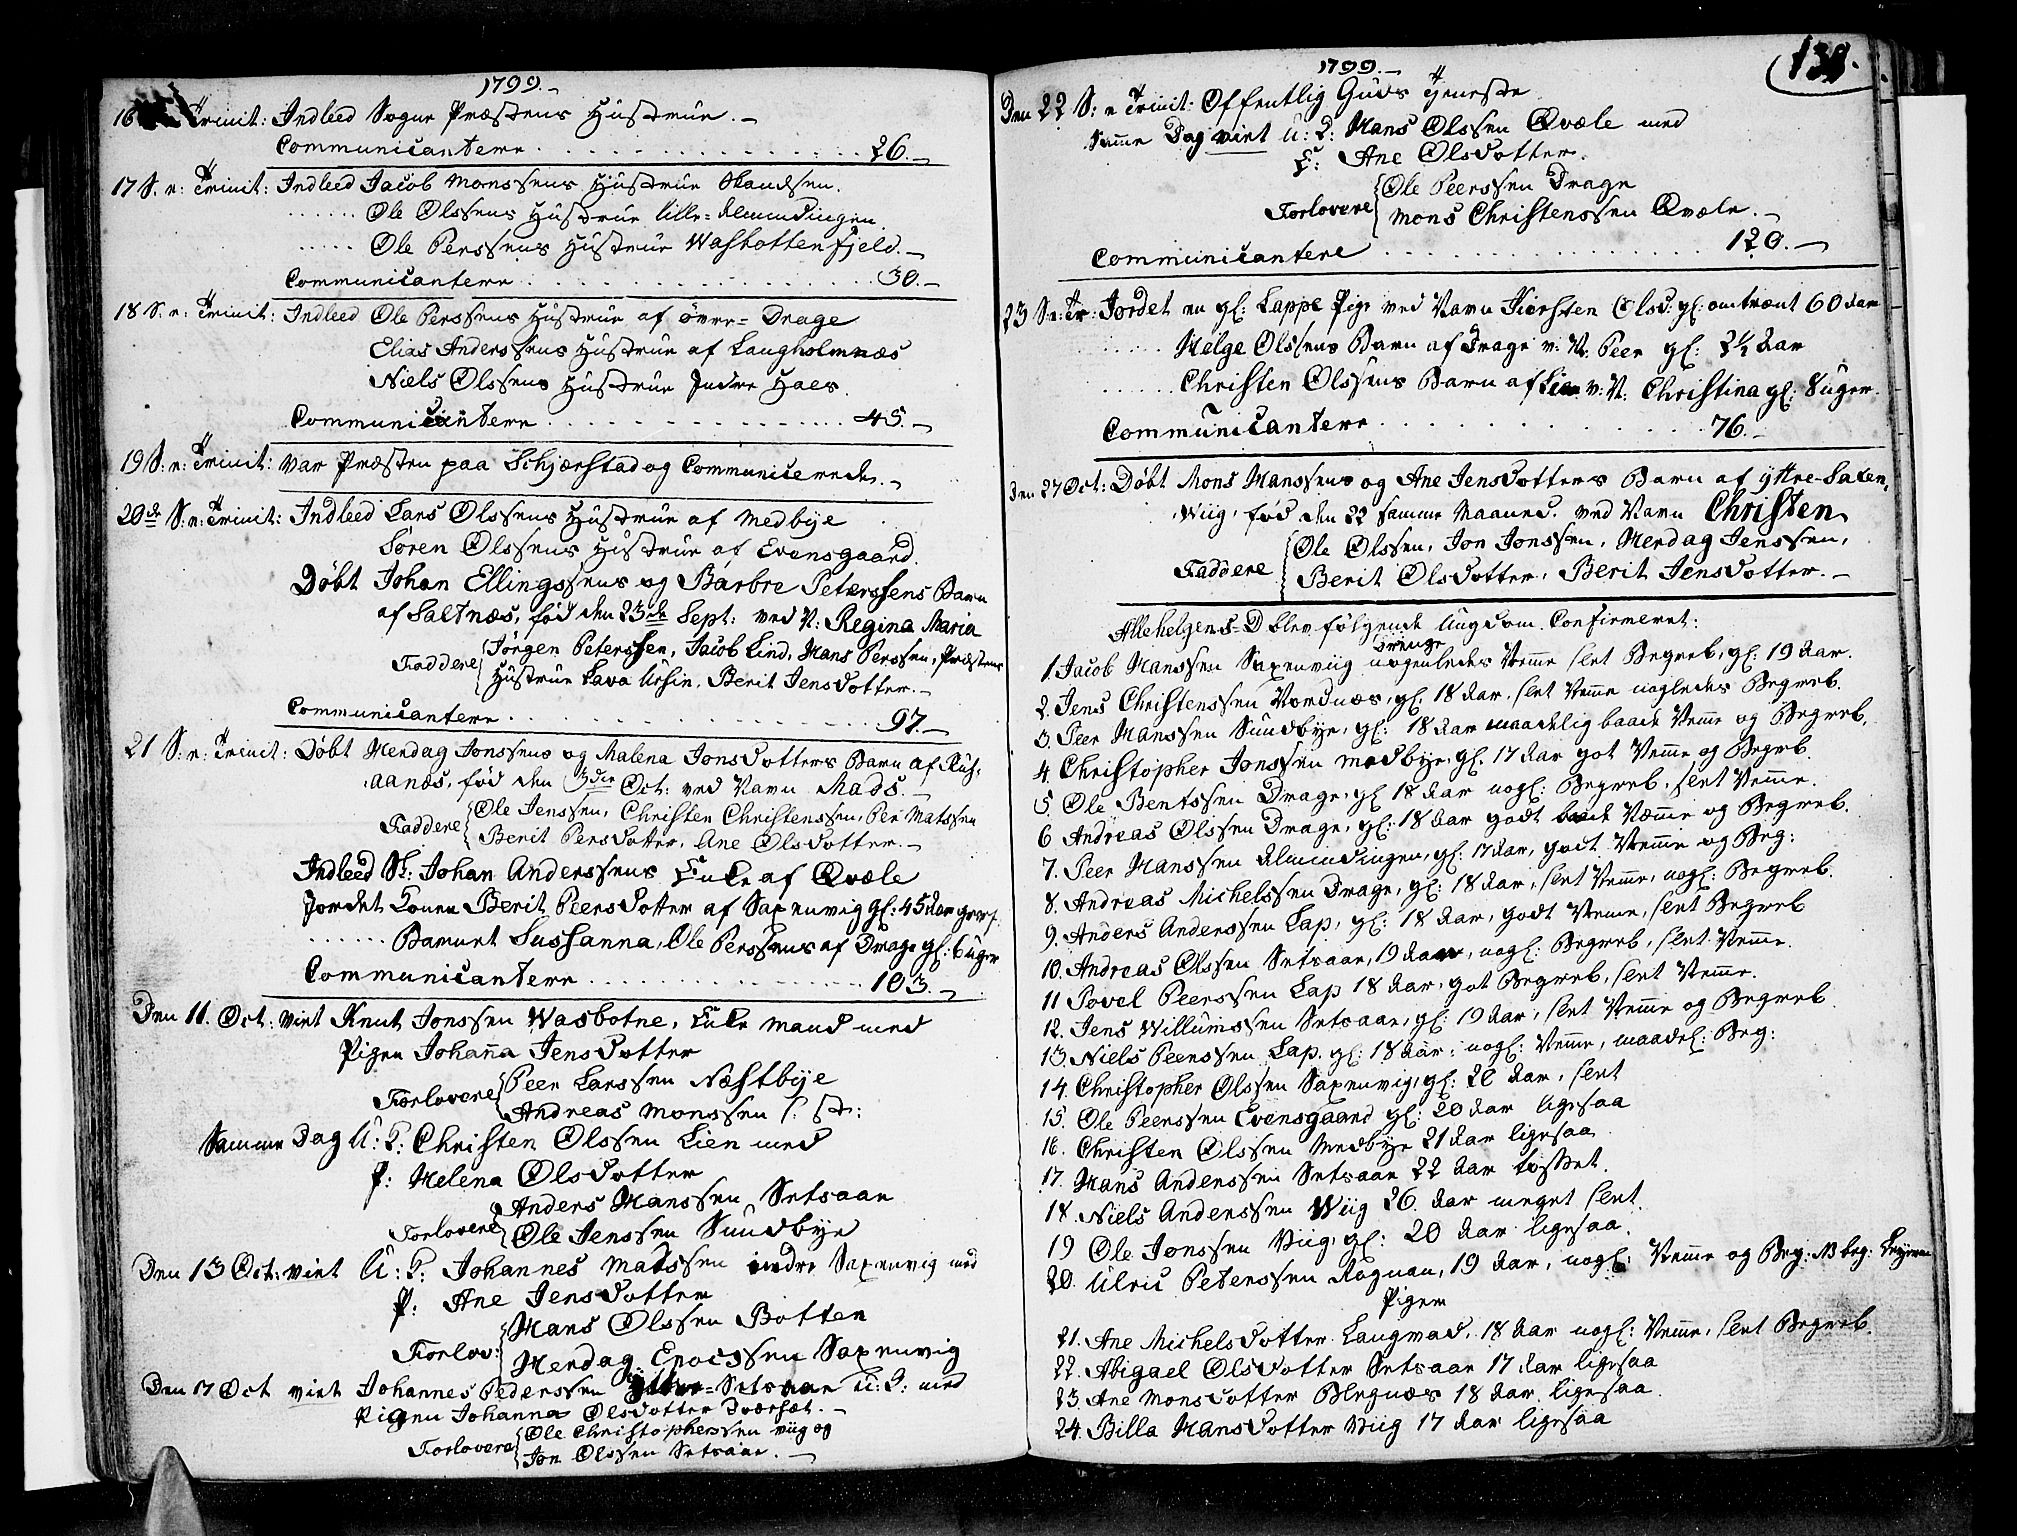 1799.
16 Trinit: Indleed Sogne Præstens Hustrue.
Communicantere 26.
17 S. e: Trinit: Indleed Jacob Monssens Hustrue
Ole Olssens Hustrue Lille-Almindingen
Ole Perssens Hustrue Wasbottenfjeld.
Communicantere 30.
18 S. e: Trinit: Indleed Ole Perssens Hustrue af øvre-Drage
Elias Anderssens Hustrue af Langholmnæs
Niels Olssens Hustrue Indre Haes.
Communicantere 45.
19 S: e: Trinit: var Præsten paa Schjærstad og Communicerede.
20de S: e: Trinit: Indleed Lars Olssens Hustrue af Medbye
Søren Olssens Hustrue af Evensgaard.
Døbt Johan Ellingssens og Barbre Peterssens Barn
af Saltnæs, fød den 23de Sept: ved N: Regina Maria
Faddere Jørgen Peterssen, Jacob Lind, Hans Perssen, Præstens
Hustrue Lava Ursin, Berit Jensdotter.
Communicantere 97.
21 S: e: Trinit: Døbt Herdag Jonssens og Malena Jonsdotters Barn af Rus,
aanæs, fød den 3die Oct: ved Navn Mads.
Faddere Ole Jenssen, Christen Christenssen, Per Matssen
Berit Persdotter, Ane Olsdotter.
Indleed Sl: Johan Anderssens Enke af Qvæle
Jordet Konen Berit Peersdotter af Saxenvig gl: 45 Aar
Barnet Sussanna, Ole Perssens af Drage gl: 6 uger
Communicantere 103.
Den 11. Oct: viet Knut Jonssen Wasbotne, Enke Mand med
Pigen Johanna Jensdotter
Forlovere Peer Larssen Næstbye
Andreas Monssen
Samme Dag U: K: Christen Olssen Lien med
P: Helena Olsdotter
Forlovere Anders Hanssen Setsaae
Ole Jenssen Sundbye
Den 13 Oct: viet U: K: Johannes Matssen indre Saxenvig med
P: Ane Jensdotter
Forlov: Hans Olssen Botten
Herdag Enocssen Saxenvig
Den 17 Oct viet Johannes Pederssen Ytter-Setsaae U: K: med
Pigen Johanna Olsdotter Dværset.
Forlovere Ole Christopherssen Viig og
Jon Olssen Setsaae.
1799. 139.
Den 22 S: e Trinit: Offentlig Guds Tjeneste
Samme Dag viet U: K: Hans Olssen Qvæle med
E: Ane Olsdotter.
Forlovere Ole Peerssen Drage
Mons Christenssen Qvæle.
Communicantere 120.
23 S: e: Tr: Jordet en gl: Lappe Pige ved Navn Kiersten Olsd: gl: omtrent 60 Aar
Helge Olssens Barn af Drage v: N: Peer gl: 2½ Aar
Christen Olssens Barn af Lien v: N: Christina gl: 8 uger.
Communicantere 76.
Den 27 Oct: Døbt Mons Hanssens og Ane Jensdotters Barn af ytre-Saxen,
Wiig, fød den 22 samme Maaned. ved Navn Christen
Faddere Ole Olssen, Jon Jonssen, Herdag Jenssen,
Berit Olsdotter, Berit Jensdotter.
Allehelgens-D blev følgende Ungdom Confirmeret:
Drenge
1. Jacob Hanssen Saxenviig nogenledes Nemme slet Begreb, gl: 19 Aar.
2. Jens Christenssen Nordnæs, gl: 18 Aar, slet Nemme nogledes Begreb.
3. Peer Hanssen Sundbye, gl: 18 Aar maadelig baade Nemme og Begreb.
4. Christopher Jonssen Medbye, gl. 17 Aar got Nemme og Begreb.
5. Ole Bentssen Drage, gl 18 Aar nogl: Begreb, slet Nemme.
6 Andreas Olssen Drage, gl: 18 Aar godt baade Nemme og Begreb.
7. Peer Hanssen Almindingen, gl: 17 Aar, godt Nemme og Beg:
8. Andreas Michelssen Drage, gl: 18 Aar, slet Nemme, nogl: Begreb.
9. Anders Anderssen Lap, gl: 18 Aar, godt Nemme, slet Begreb
10. Andreas Olssen Setsaae, 19 Aar, nogl: Begreb, slet Nemme.
11 Povel Peerssen Lap 18 Aar, got Begreb, slet Nemme.
12. Jens Willumssen Setsaae, gl: 19 Aar, slet Nemme og Begreb
13. Niels Peerssen Lap. gl: 18 Aar, nogl: Nemme, maadel: Beg:
14. Christopher Olssen Saxenvig, gl: 20 Aar, slet
15. Ole Peerssen Evensgaard gl: 20 Aar ligesaa
16. Christen Olssen Medbye 21 Aar ligesaa
17. Hans Anderssen Setsaae 22 Aar tosset.
18. Niels Anderssen Wiig 26 Aar meget slet.
19 Ole Jonssen Viig, gl: 20 Aar ligesaa.
20. Ulric Peterssen Rognan, 19 Aar, nogl: Nemme og Beg:
Piger
21. Ane Michelsdotter Langvad, 18 Aar nogl: Nemme, slet Begreb.
22. Abigael Olsdotter Setsaae 17 Aar ligesaa
23. Ane Monsdotter Blegnæs 18 Aar ligesaa.
24. Billa Hansdotter Viig 17 Aar ligesaa